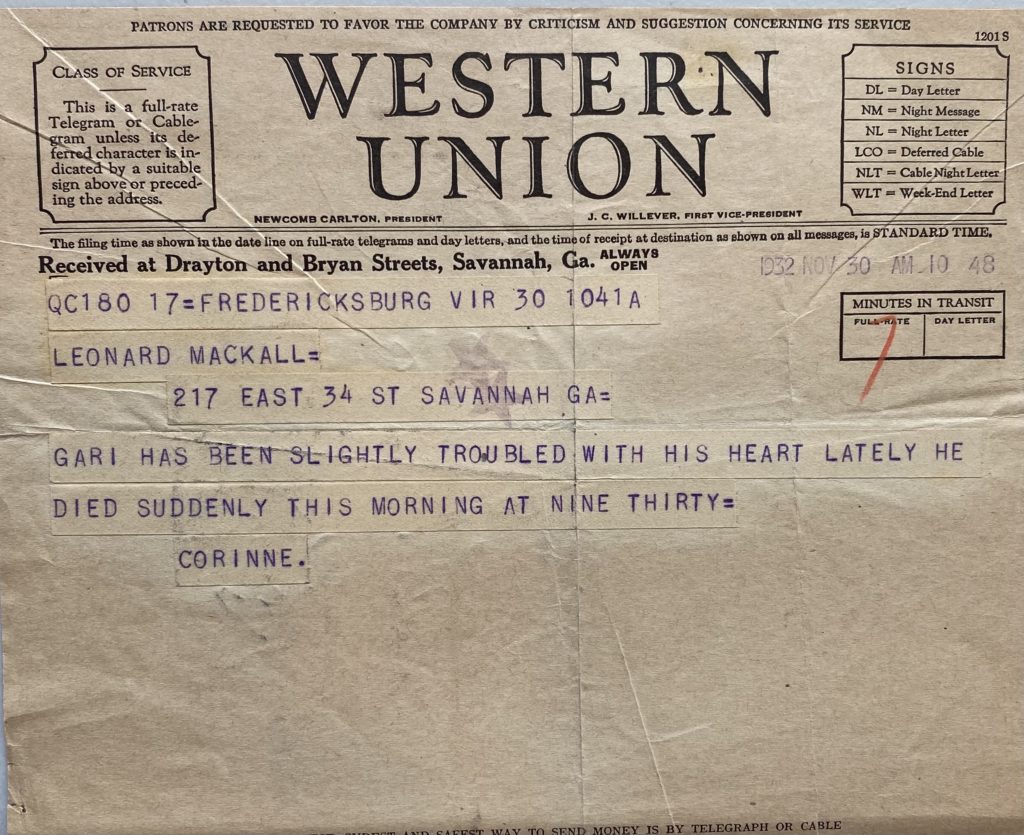 PATRONS ARE REQUESTED TO FAVOR THE COMPANY BY CRITICISM AND SUGGESTION CONCERNING ITS SERVICE
1201S
CLASS OF SERVICE
This is a full-rate
Telegram or Cable-
gram unless its de-
ferred character is in-
dicated by a suitable
sign above or preced-
ing the address.
WESTERN
UNION
NEWCOMB CARLTON, PRESIDENT
J. C. WILLEVER, FIRST VICE-PRESIDENT
SIGNS
DL = Day Letter
NM = Night Message
NL = Night Letter
LCO = Deferred Cable
NLT = Cable Night Letter
WLT = Week-End Letter
The filing time as shown in the date line on full-rate telegrams and day letters, and the time of receipt at destination as shown on all messages, is STANDARD TIME.
Received at Drayton and Bryan Streets, Savannah, Ga. ALWAYS OPEN
1932 NOV 30 AM 10 48
MINUTES IN TRANSIT
FULL-RATE
DAY LETTER
7
QC180 17=FREDERICKSBURG VIR 30 1041A
LEONARD MACKALL=
217 EAST 34 ST SAVANNAH GA=
GARI HAS BEEN SLIGHTLY TROUBLED WITH HIS HEART LATELY HE
DIED SUDDENLY THIS MORNING AT NINE THIRTY=
CORINNE.
AND SAFEST WAY TO SEND MONEY IS BY TELEGRAPH OR CABLE